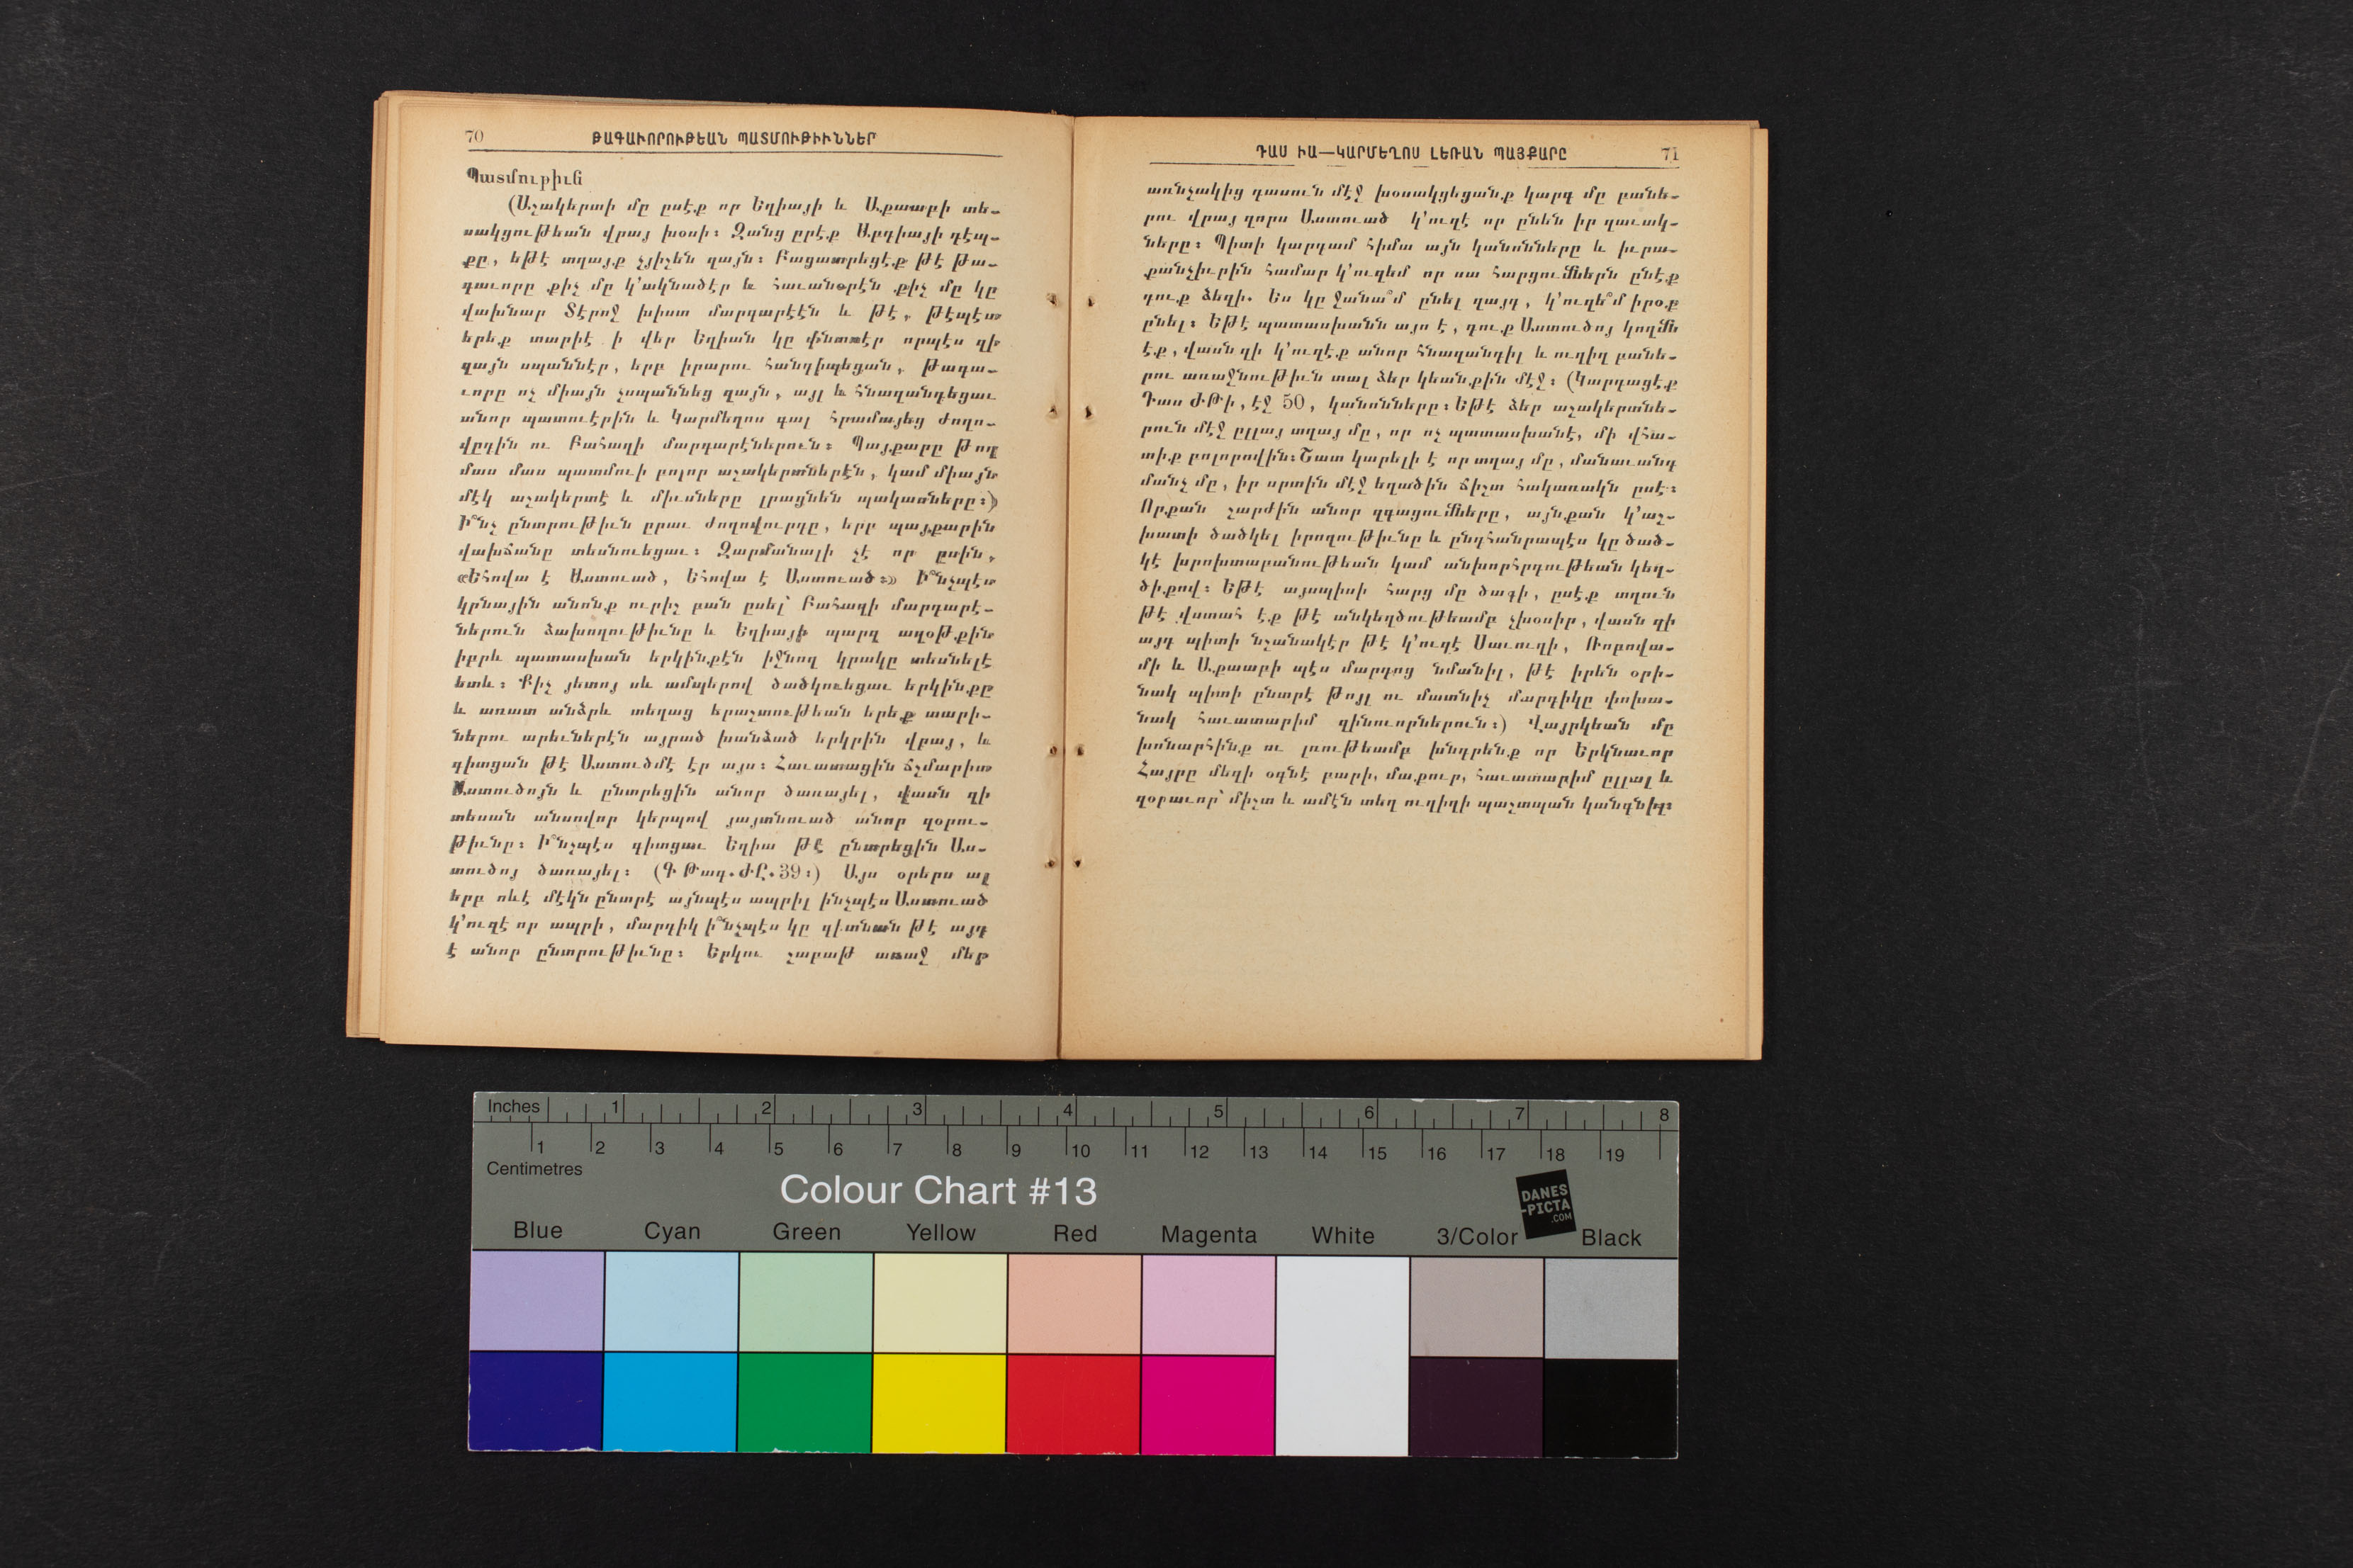 70 ԹԱԳԱՒՈՐՈՒԹԵԱՆ ՊԱՏՄՈՒԹԻՒՆՆԵՐ
Պատմութիւն
(Աշակերտի մը ըսէք որ Եղիայի և Աքաաբի տե-
սակցութեան վրայ խօսի։ Զանց ըրէք Աբդիայի դէպ-
քը, եթէ տղայք չյիշեն զայն։ Բացատրեցէք թէ թա-
գաւորը քիչ մը կ՚ակնածէր և հաւանօրէն քիչ մը կը
վախնար Տէրոջ խիստ մարգարէէն և թէ, թէպէտ
երեք տարիէ ի վեր Եղիան կը փնտռէր որպէս զի
զայն սպաննէր, երբ իրարու հանդիպեցան, թագա-
ւորը ոչ միայն չսպաննեց զայն, այլ և հնազանդեցաւ
անոր պատուէրին և Կարմեղոս գալ հրամայեց ժողո-
վըդին ու Բահաղի մարդարէներուն։ Պայքարը թող
մաս մաս պատմուի բոլոր աշակերտներէն, կամ միայն
մէկ աշակերտէ և միւսները լրացնեն պակասները։)
Ի՞նչ ընտրութիւն ըրաւ ժողովուրդը, երբ պայքարին
վախճանը տեսնուեցաւ։ Զարմանալի չէ որ ըսին,
«Եհովա է Աստուած, Եհովա է Աստուած։» Ի՞նչպէս
կրնային անոնք ուրիշ բան ըսել՝ Բահաղի մարդարէ-
ներուն ձախողութիւնը և Եղիայի պարզ աղօթքին
իբրև պատասխան երկինքէն իջնող կրակը տեսնելէ
ետև։ Քիչ յետոյ սև ամպերով ծածկուեցաւ երկինքը
և առատ անձրև տեղաց երաշտութեան երեք տարի-
ներու արեւներէն այրած խանձած երկրին վրայ, և
գիտցան թէ Աստուծմէ էր այս։ Հաւատացին ճշմարիտ
Աստուծոյն և ընտրեցին անոր ծառայել, վասն զի
տեսան անսովոր կերպով յայտնուած անոր զօրու-
թիւնը։ Ի՞նչպէս գիտցաւ Եղիա թէ ընտրեցին Աս-
տուծոյ ծառայել։ (Գ Թագ. ԺԸ. 39։) Այս օրերս ալ
երբ ոևէ մէկն ընտրէ այնպէս ապրիլ ինչպէս Աստուած
կ՚ուզէ որ ապրի, մարդիկ ի՞նչպէս կը գիտնան թէ այդ
է անոր ընտրութիւնը։ Երկու շաբաթ առաջ մեր
ԴԱՍ ԻԱ—ԿԱՐՄԵՂՈՍ ԼԵՌԱՆ ՊԱՅՔԱՐԸ 71
առնչակից դասուն մէջ խօսակցեցանք կարգ մը բանե-
րու վրայ զորս Աստուած կ՚ուզէ որ ընեն իր զաւակ-
ները։ Պիտի կարդամ հիմա այն կանոնները և իւրա-
քանչիւրին համար կ՚ուզեմ որ սա հարցումներն ընէք
դուք ձեզի. Ես կը ջանա՞մ ընել զայդ, կ՚ուզե՞մ իրօք
ընել։ Եթէ պատասխանն այո է, դուք Աստուծոյ կողմն
էք, վասն զի կ՚ուզէք անոր հնազանդիլ և ուղիղ բանե-
րու առաջնութիւն տալ ձեր կեանքին մէջ։ (Կարդացէք
Դաս ԺԹի, էջ 50, կանոնները։ Եթէ ձեր աշակերտնե-
րուն մէջ ըլլայ տղայ մը, որ ոչ պատասխանէ, մի վհա-
տիք բոլորովին։ Շատ կարելի է որ տղայ մը, մանաւանդ
մանչ մը, իր սրտին մէջ եղածին ճիշտ հակառակն ըսէ։
Որքան շարժին անոր զգացումները, այնքան կ՚աշ-
խատի ծածկել իրողութիւնը և ընդհանրապէս կը ծած-
կէ խրոխտաբանութեան կամ անխորհրդութեան կեղ-
ծիքով։ Եթէ այսպիսի հարց մը ծագի, ըսէք տղուն
թէ վստահ էք թէ անկեղծութեամբ չխօսիր, վասն զի
այդ պիտի նշանակէր թէ կ՚ուզէ Սաւուղի, Ռոբովա-
մի և Աքաաբի պէս մարդոց նմանիլ, թէ իրեն օրի-
նակ պիտի ընտրէ թոյլ ու մատնիչ մարդիկը փոխա-
նակ հաւատարիմ զինուորներուն։) Վայրկեան մը
խոնարհինք ու լռութեամբ խնդրենք որ Երկնաւոր
Հայրը մեզի օգնէ բարի, մաքուր, հաւատարիմ ըլլալ և
զօրաւոր՝ միշտ և ամէն տեղ ուղիղի պաշտպան կանգնիլ։
Inches 1 2 3 4 5 6 7 8
1 2 3 4 5 6 7 8 9 10 11 12 13 14 15 16 17 18 19
Centimetres
Colour Chart #13
DANES
-PICTA
.COM
Blue Cyan Green Yellow Red Magenta White 3/Color Black